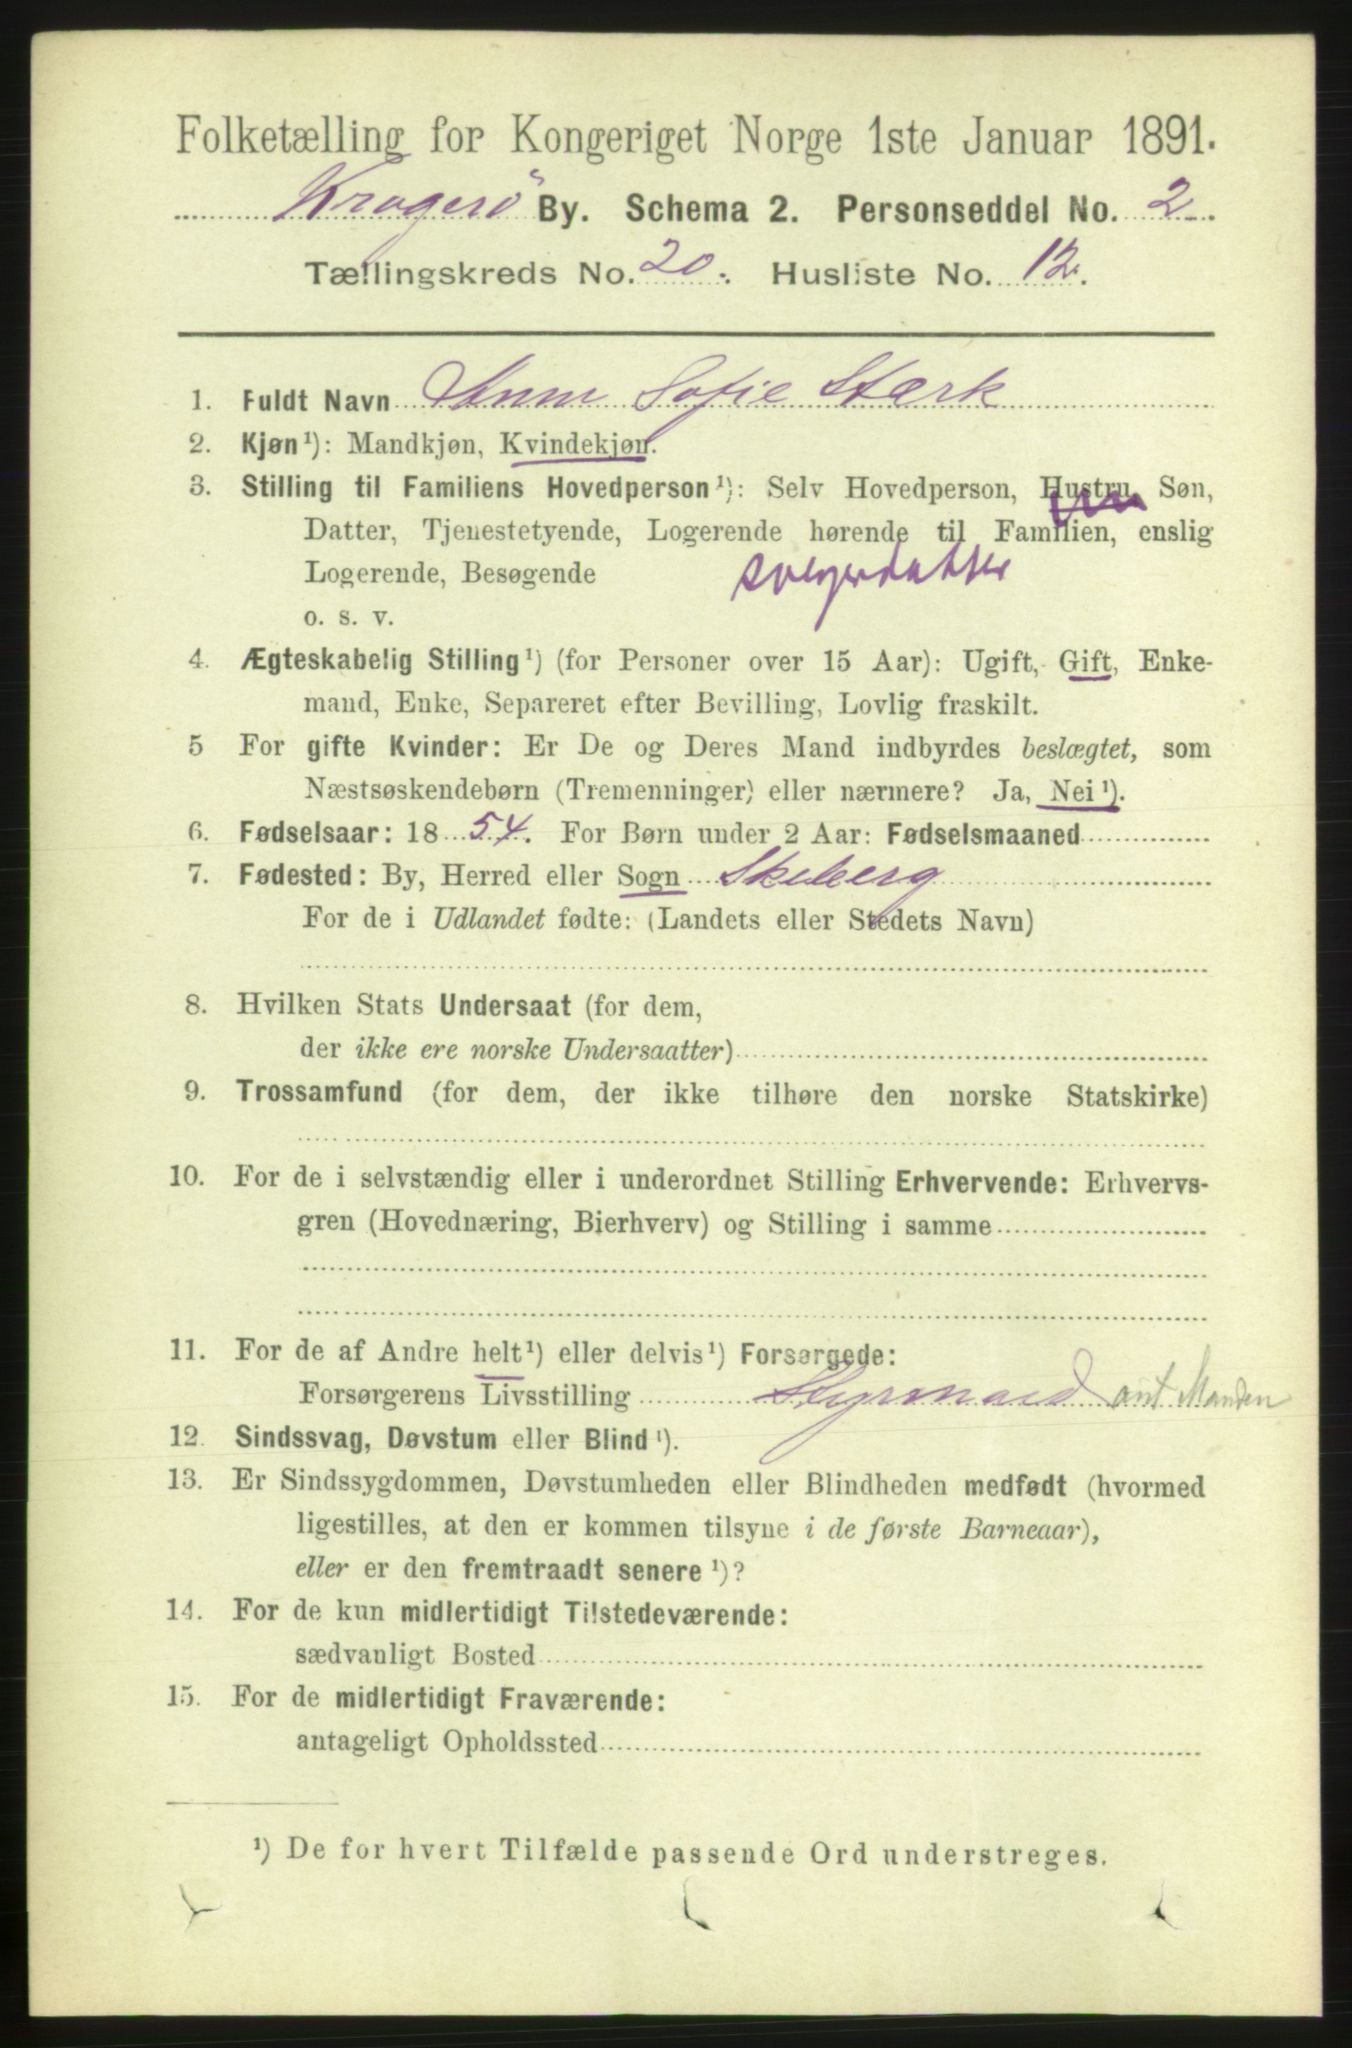 Folketælling for Kongeriget Norge 1ste Januar 1891.
Kragerö By. Schema 2. Personseddel No. 2.
Tællingskreds No. 20. Husliste No. 12.
1. Fuldt Navn Anne Sofie Stærk
2. Kjøn ¹): Mandkjøn, Kvindekjøn.
3. Stilling til Familiens Hovedperson ¹): Selv Hovedperson, Hustru, Søn,
Datter, Tjenestetyende, Logerende hørende til Familien, enslig
Logerende, Besøgende svigerdatter
o. s. v.
4. Ægteskabelig Stilling ¹) (for Personer over 15 Aar): Ugift, Gift, Enke-
mand, Enke, Separeret efter Bevilling, Lovlig fraskilt.
5 For gifte Kvinder: Er De og Deres Mand indbyrdes beslægtet, som
Næstsøskendebørn (Tremenninger) eller nærmere? Ja, Nei ¹).
6. Fødselsaar: 18 54. For Børn under 2 Aar: Fødselsmaaned
7. Fødested: By, Herred eller Sogn Skeberg
For de i Udlandet fødte: (Landets eller Stedets Navn)
8. Hvilken Stats Undersaat (for dem,
der ikke ere norske Undersaatter)
9. Trossamfund (for dem, der ikke tilhøre den norske Statskirke)
10. For de i selvstændig eller i underordnet Stilling Erhvervende: Erhvervs-
gren (Hovednæring, Bierhverv) og Stilling i samme
11. For de af Andre helt ¹) eller delvis ¹) Forsørgede:
Forsørgerens Livsstilling Styrmand ant Manden
12. Sindssvag, Døvstum eller Blind ¹).
13. Er Sindssygdommen, Døvstumheden eller Blindheden medfødt (hvormed
ligestilles, at den er kommen tilsyne i de første Barneaar),
eller er den fremtraadt senere ¹)?
14. For de kun midlertidigt Tilstedeværende:
sædvanligt Bosted
15. For de midlertidigt Fraværende:
antageligt Opholdssted
¹) De for hvert Tilfælde passende Ord understreges.